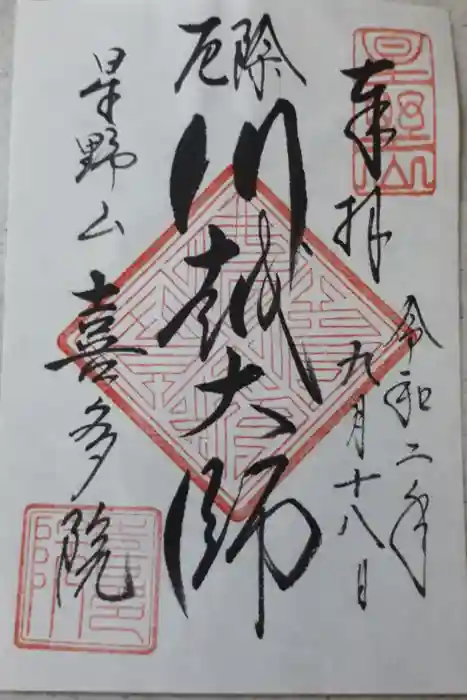 奉拝
令和二年
九月十八日
厄除
川越大師
星野山
喜多院